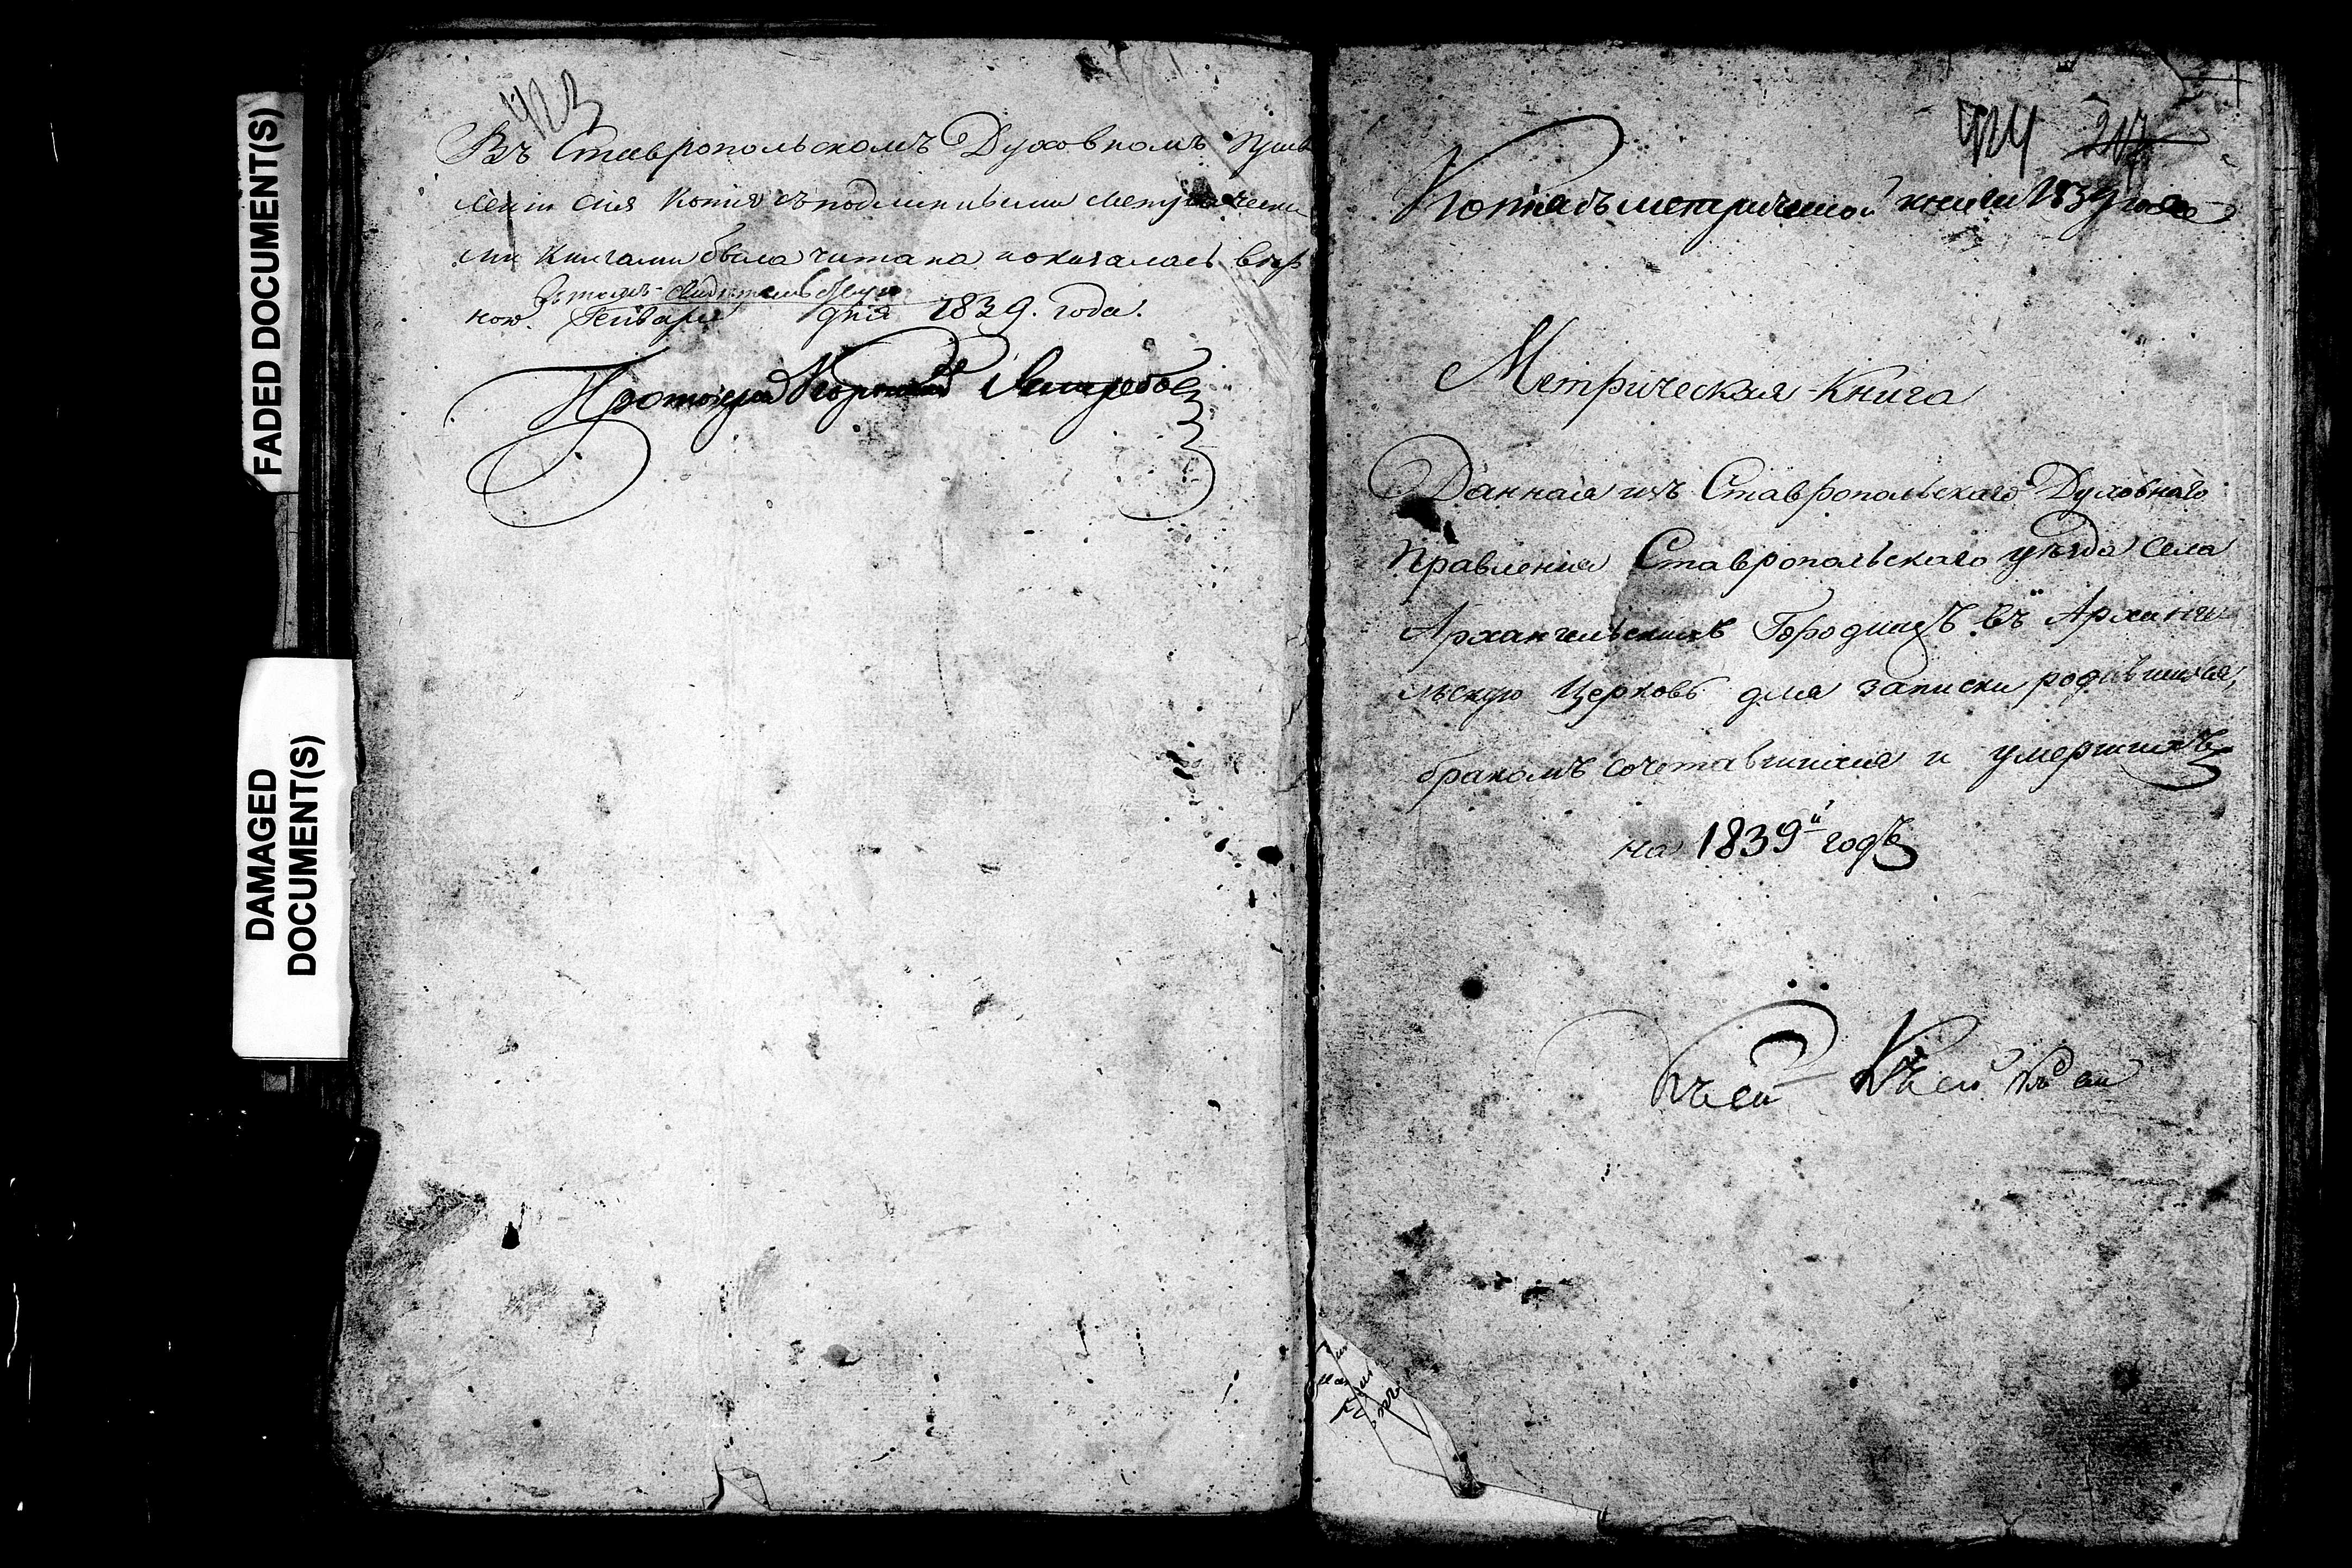 FADED DOCUMENT(S)
DAMAGED
DOCUMENT(S)
423
Въ Ставропольскомъ Духовномъ Прав
леніи сія копія съ подлинными Метрически
ми книгами была читана и оказалась вѣр
въ томъ свидѣтельствую
ною. Генваря дня 1839. года.
Протоіерей
424 217
Копія съ метрической книги 1839 года
Метрическая Книга
Данная изъ Ставропольскаго Духовнаго
Правленія Ставропольскаго уѣзда села
Архангельскихъ Городищъ въ Арханге
льскую Церковь для записки родившихся,
бракомъ сочетавшихся и умершихъ
на 1839й годъ